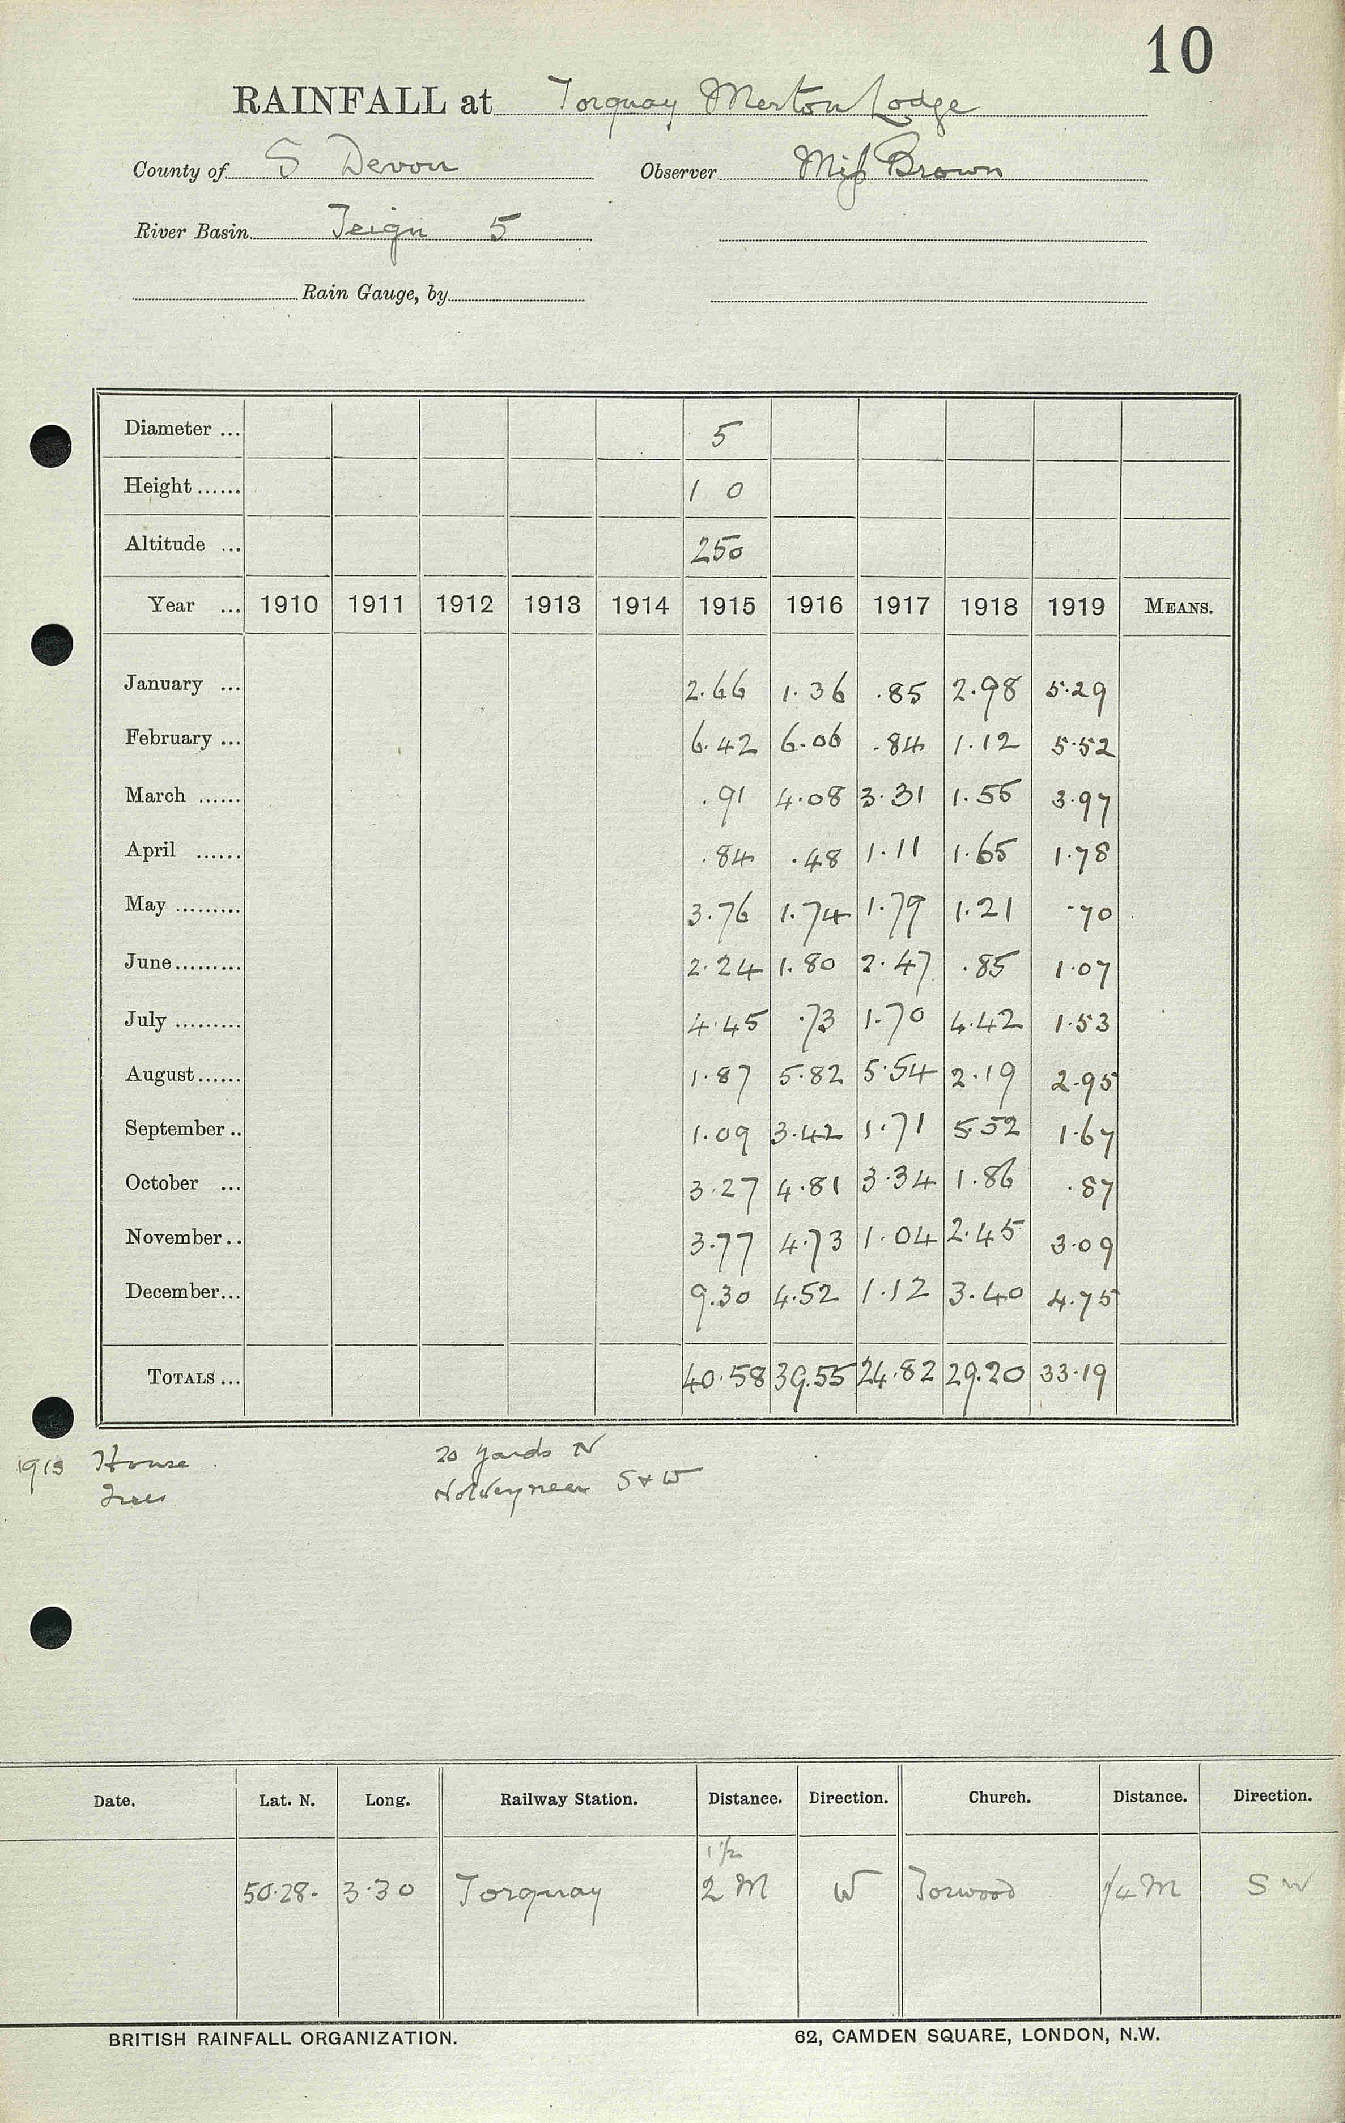 10
RAINFALL at Torquay Merton Lodge
County of S Devon Observer Miss Brown
River Basin Teign 5
Rain Gauge, by
Diameter ... 5
Height ...... 1 0
Altitude ... 250
Year ... 1910 1911 1912 1913 1914 1915 1916 1917 1918 1919 MEANS.
January ... 2.66 1.36 .85 2.98 5.29
February ... 6.42 6.06 .84 1.12 5.52
March ...... .91 4.08 3.31 1.55 3.97
April ...... .84 .48 1.11 1.65 1.78
May ......... 3.76 1.74 1.79 1.21 .70
June......... 2.24 1.80 2.47 .85 1.07
July ......... 4.45 .73 1.70 4.42 1.53
August...... 1.87 5.82 5.54 2.19 2.95
September .. 1.09 3.42 1.71 5.52 1.67
October ... 3.27 4.81 3.34 1.86 .87
November.. 3.77 4.73 1.04 2.45 3.09
December... 9.30 4.52 1.12 3.40 4.75
TOTALS ... 40.58 39.55 24.82 29.20 33.19
House 20 yards N
Trees Not very near S & W
Date. Lat. N. Long. Railway Station. Distance. Direction. Church. Distance. Direction.
1½
50.28. 3.30 Torquay 2 M W Torwood ¼ M SW
BRITISH RAINFALL ORGANIZATION. 62, CAMDEN SQUARE, LONDON, N.W.